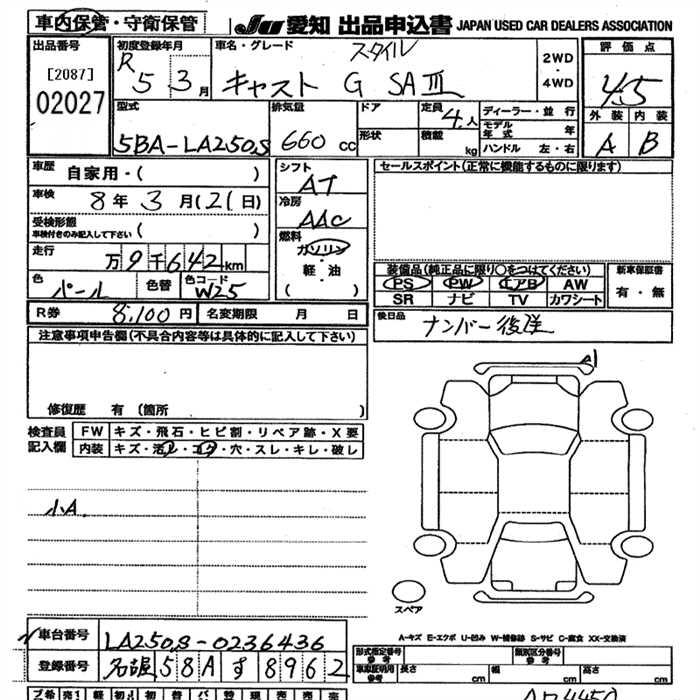 車内保管・守衛保管 JU 愛知 出品申込書 JAPAN USED CAR DEALERS ASSOCIATION
出品番号 初度登録年月 車名・グレード スタイル 評価点
[2087] R 5年 3月 キャスト G SAⅢ 2WD・4WD 4.5
02027
型式 排気量 ドア 定員 4人 ディーラー・並行 外装 内装
5BA-LA250S 660cc 形状 積載 kg モデル年式 年 A B
ハンドル 左・右
車歴 自家用・( ) シフト AT セールスポイント(正常に機能するものに限ります)
車検 8年 3月(21日) 冷房 AAC
受検形態 車検付きのみ記入して下さい ( ) 燃料 ガソリン・軽・油 ( )
走行 万9千642km 装備品(純正品に限り○をつけてください) 新車保証書
色 パール 色替 色コード W25 PS PW エアB AW 有・無
SR ナビ TV カワシート
R券 8,100円 名変期限 月 日 後日品 ナンバー後送
注意事項申告欄(不具合内容等は具体的に記入して下さい)
修復歴 有(箇所 )
A1
検査員記入欄 FW キズ・飛石・ヒビ割・リペア跡・X要
内装 キズ・汚レ・コゲ・穴・スレ・キレ・破レ
小A.
スペア
A-キズ E-エクボ U-凹み W-補修跡 S-サビ C-腐食 XX-交換済
車台番号 LA250S-0236436 形式指定番号 参考 類別区分番号 参考
登録番号 名古屋 58A す 8962 車庫証明用 参考 長さ cm 幅 cm 高さ cm